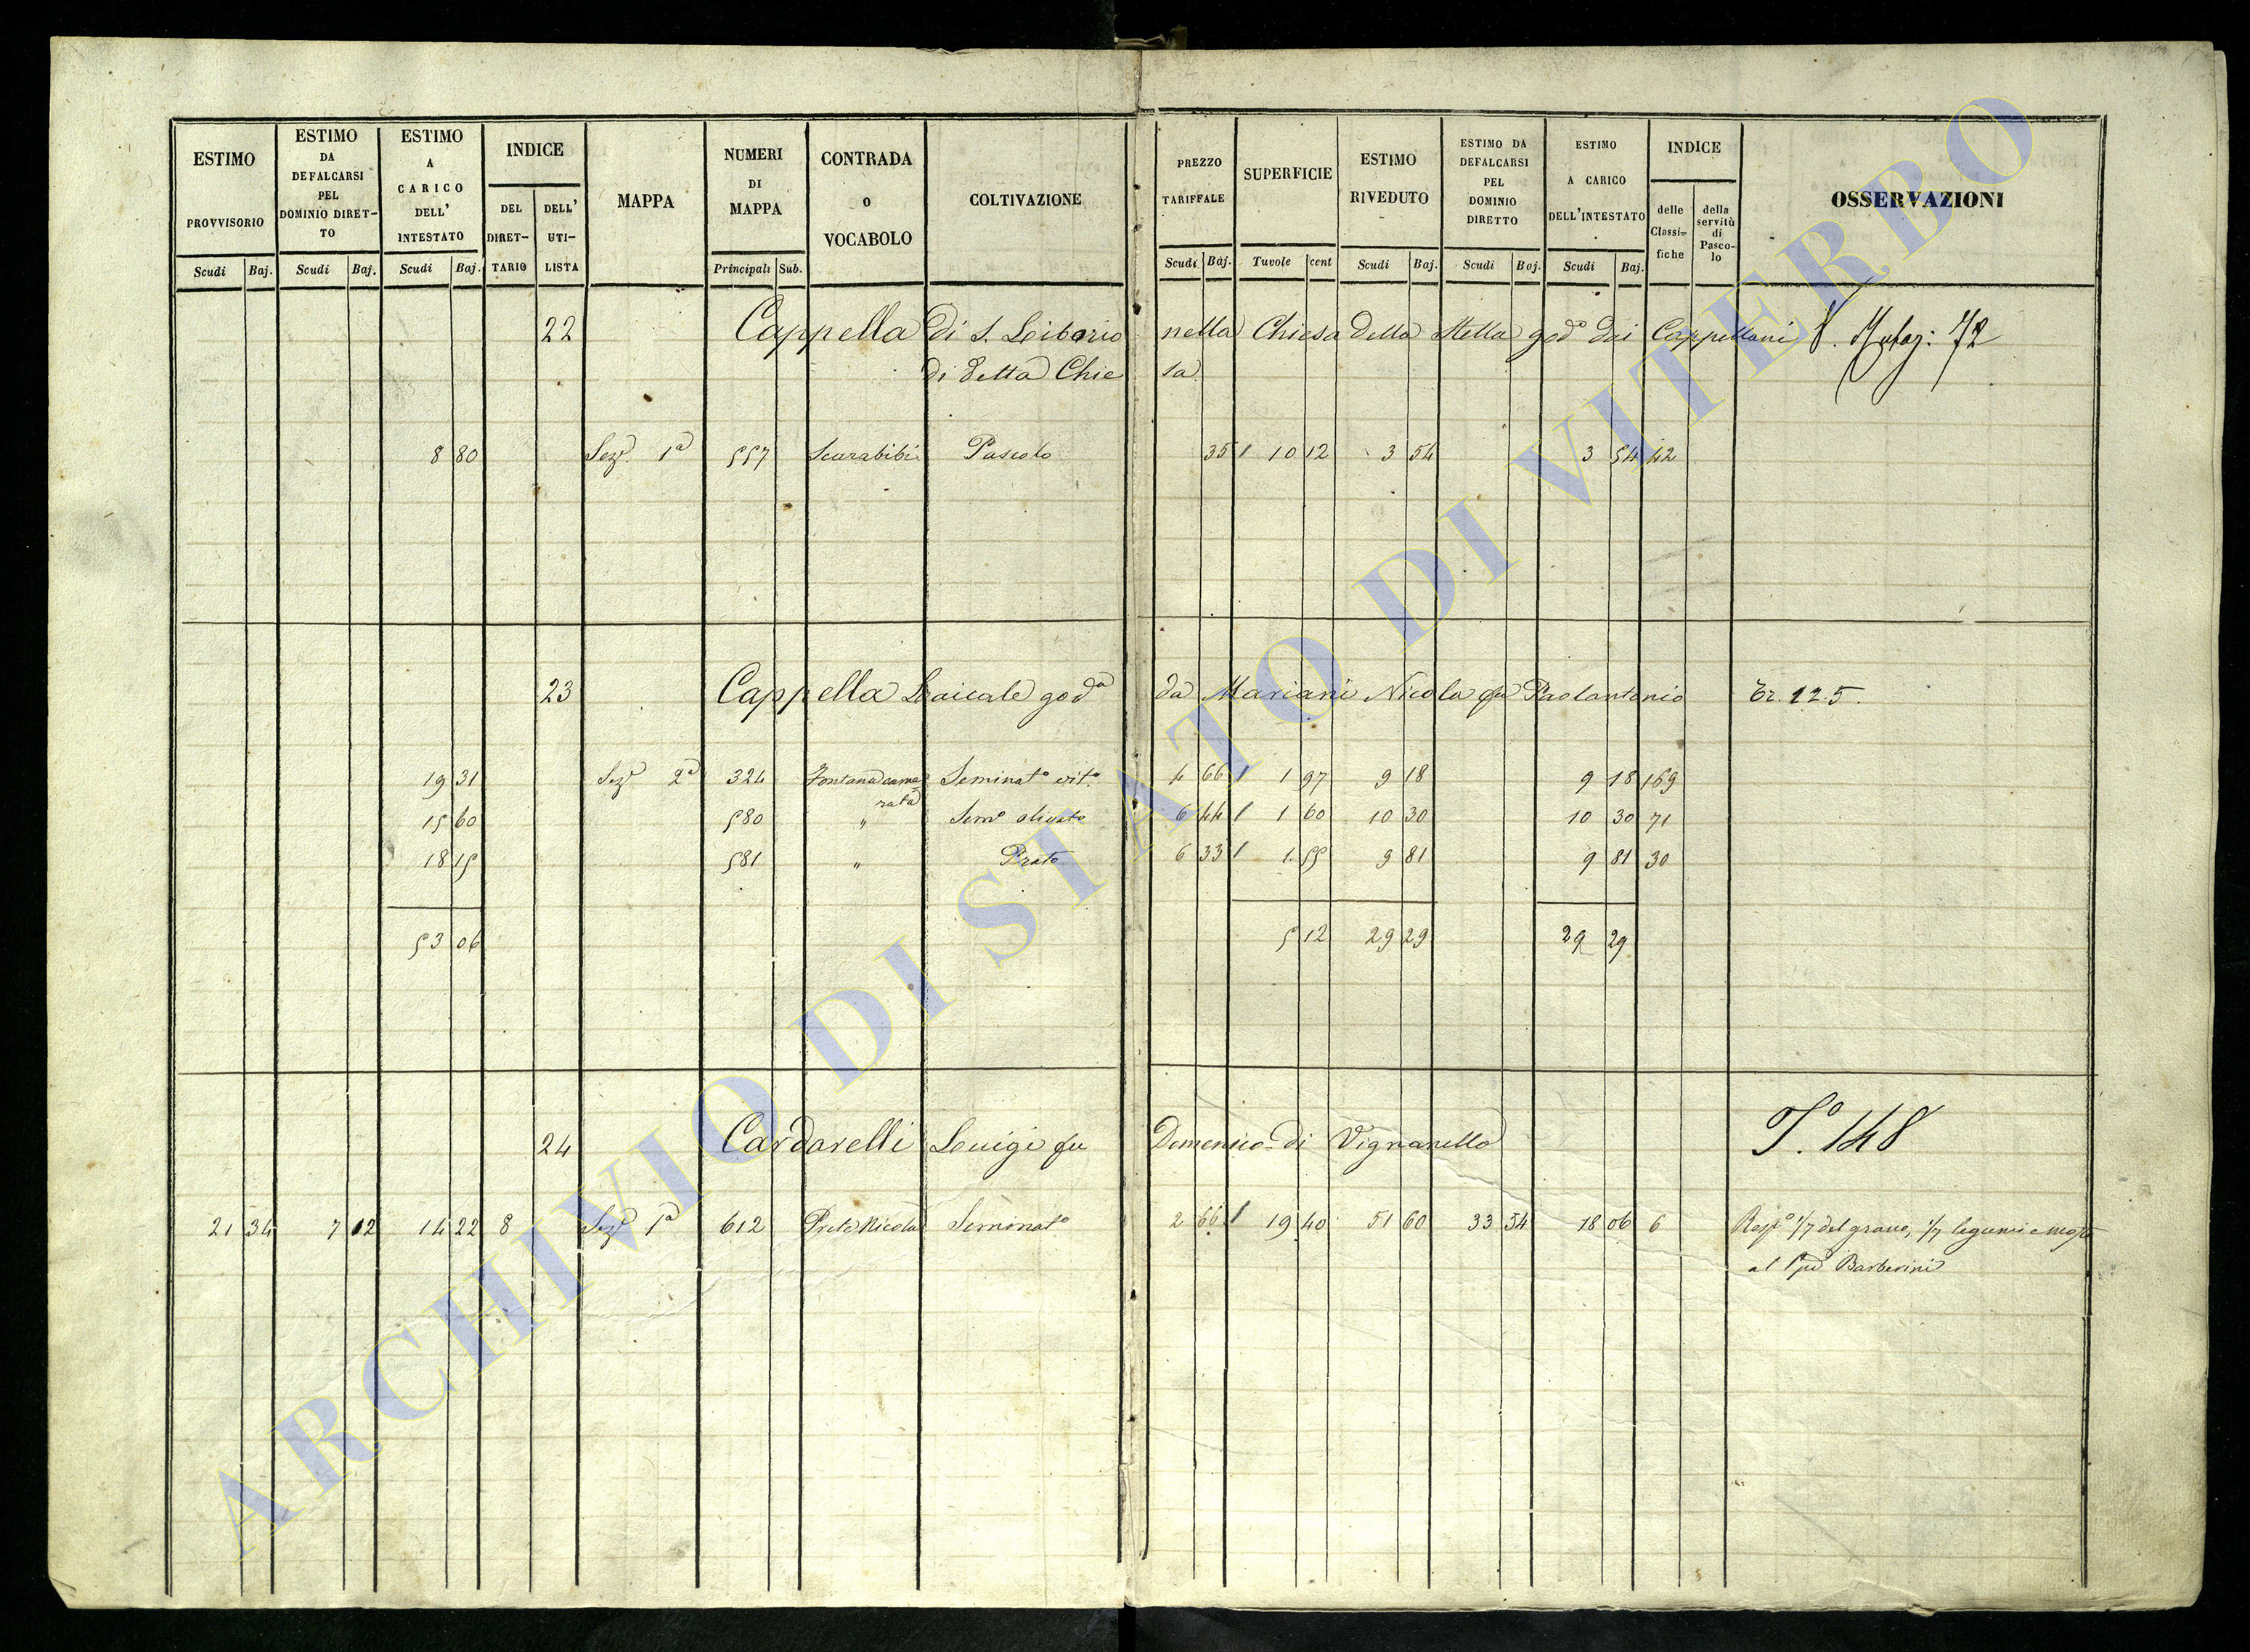 ESTIMO PROVVISORIO Scudi Baj.
ESTIMO DA DEFALCARSI PEL DOMINIO DIRET-TO Scudi Baj.
ESTIMO A CARICO DELL' INTESTATO Scudi Baj.
INDICE DEL DIRET-TARIO DELL' UTI-LISTA
MAPPA
NUMERI DI MAPPA Principali Sub.
CONTRADA o VOCABOLO
COLTIVAZIONE
PREZZO TARIFFALE Scudi Baj.
SUPERFICIE Tavole cent
ESTIMO RIVEDUTO Scudi Baj.
ESTIMO DA DEFALCARSI PEL DOMINIO DIRETTO Scudi Baj.
ESTIMO A CARICO DELL'INTESTATO Scudi Baj.
INDICE delle Classi=fiche della servitù di Pasco-lo
OSSERVAZIONI
22 Cappella di S. Liborio nella Chiesa della Stella god.a dai Cappellani V. Mutaz: 72
di detta Chie sa
8 80 Sez.e 1a 557 Scarabibi Pascolo 35 1 10 12 3 54 3 54 42
23 Cappella Laicale god.a da Mariani Nicola qu Paolantonio Tr. 125.
19 31 Sez.e 2a 324 Fontana came Seminat.o vit.o 4 66 1 1 97 9 18 9 18 169
rata
15 60 580 " Sem.o olivato 6 44 1 1 60 10 30 10 30 71
18 15 581 " Prato 6 33 1 1 55 9 81 9 81 30
53 06 5 12 29 29 29 29
24 Cardarelli Luigi fu Domenico di Vignanello T.o 148
21 34 7 12 14 22 8 Sez.e 1a 612 Prete Nicola Seminat.o 2 66 1 19 40 51 60 33 54 18 06 6 Risp.o 1/7 del grano, 1/7 legumi e mosto
al Barberini
ARCHIVIO DI STATO DI VITERBO